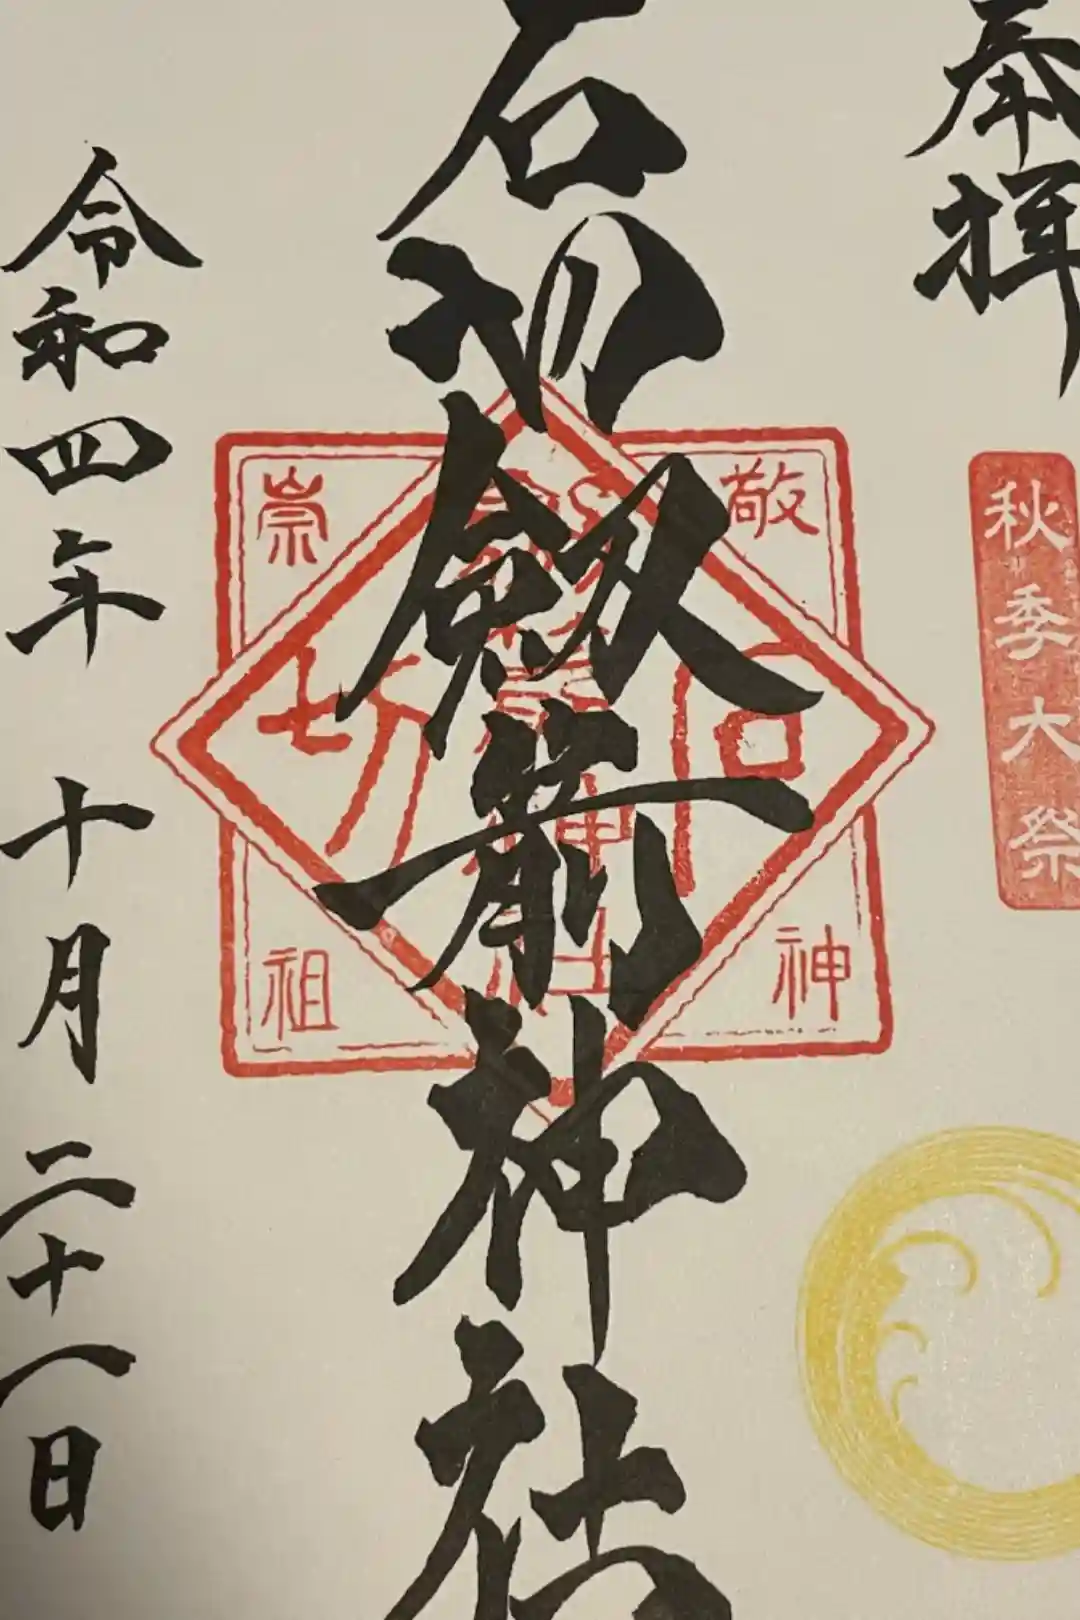 奉拝
秋季大祭
石切劔箭神社
敬神
崇祖
石切
劔箭神社
令和四年 十月 二十八日